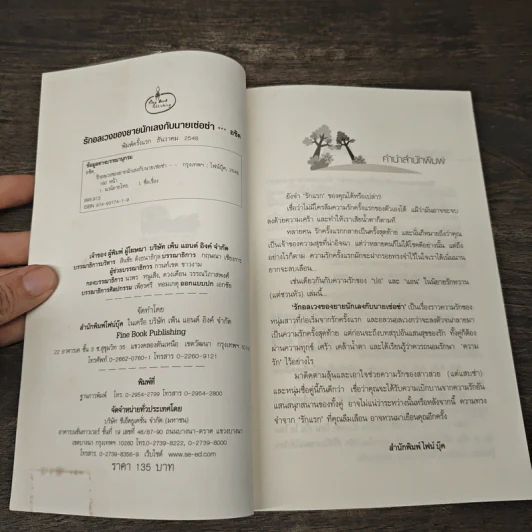 รักอลเวงของยายนักเลงกับนายเซ่อซ่า ... อชิต
พิมพ์ครั้งแรก ธันวาคม 2548
ข้อมูลทางบรรณานุกรม
อชิต.
รักอลเวงของยายนักเลงกับนายเซ่อซ่า - - กรุงเทพฯ : ไฟน์บุ๊ค, 2548.
หน้า
1. นวนิยายไทย I. ชื่อเรื่อง
895.913
เจ้าของ ผู้พิมพ์ ผู้โฆษณา บริษัท เพ็น แอนด์ อิงค์ จำกัด
บรรณาธิการบริหาร
บรรณาธิการ
ผู้ช่วยบรรณาธิการ
กองบรรณาธิการ
บรรณาธิการศิลปกรรม ออกแบบปก
จัดทำโดย
สำนักพิมพ์ไฟน์บุ๊ค ในเครือ บริษัท เพ็น แอนด์ อิงค์ จำกัด
Fine Book Publishing
22 อาคารบค ชั้น 3 ซ.สุขุมวิท 35 แขวงคลองตันเหนือ เขตวัฒนา กรุงเทพฯ
โทรศัพท์ 0-2662-0760-1 โทรสาร 0-2260-9121
พิมพ์ที่
โทร. 0-2954-2799 โทรสาร 0-2954-2800
จัดจำหน่ายทั่วประเทศโดย
บริษัท ซีเอ็ดยูเคชั่น จำกัด (มหาชน)
อาคารเนชั่นทาวเวอร์ ชั้นที่ 19 เลขที่ 46/87-90 ถนนบางนา-ตราด แขวงบางนา
เขตบางนา กรุงเทพฯ 10260 โทร.0-2739-8222, 0-2739-8000
โทรสาร 0-2739-8356-9 เว็บไซต์ www.se-ed.com
ราคา 135 บาท
คำนำสำนักพิมพ์
ยังจำ "รักแรก" ของคุณได้หรือเปล่า?
เชื่อว่าไม่มีใครลืมความรักครั้งแรกของตัวเองได้ แม้ว่ามันอาจจะจบ
ลงด้วยความเศร้า และทำให้เราเสียน้ำตาก็ตามที
หลายคน รักครั้งแรกกลายเป็นรักครั้งสุดท้าย และนั่นก็หมายถึงว่าคุณ
เป็นเจ้าของความสุขที่น่าอิจฉา แต่ว่าหลายคนก็ไม่ได้โชคดีอย่างนั้น แต่ถึง
อย่างไรก็ตาม ความรักครั้งแรกมักจะฝากรอยทรงจำไว้ในใจเราได้เนิ่นนาน
ยากจะลบเลือน...
เช่นเดียวกันกับความรักของ "ปอ" และ "แอน" ในนิยายรักหวาน
(แต่ชวนหัว) เล่มนี้...
"รักอลเวงของยายนักเลงกับนายเซ่อซ่า" เป็นเรื่องราวความรักของ
หนุ่มสาวที่ก่อเริ่มจากรักครั้งแรก และอลวนอลเวงกว่าจะลงตัวจนกลายมา
เป็นความรักครั้งสุดท้าย แต่ก่อนจะถึงบทสรุปอันแสนสุขของรัก ทั้งคู่ก็ต้อง
ผ่านความทุกข์ เศร้า เคล้าน้ำตา และได้เรียนรู้ว่าควรถนอมรักษา "ความ
รัก" ไว้อย่างไร
มาติดตามลุ้นและเอาใจช่วยความรักของสาวสวย (แต่แสบซ่า)
และหนุ่มซื่อคู่นี้กันดีกว่า เชื่อว่าคุณจะได้รับความเบิกบานจากความรักอัน
แสนสนุกสนานของทั้งคู่ อาจไม่แน่ว่าระหว่างนั้นหรือหลังจากนี้ ความทรง
จำจาก "รักแรก" ที่คุณลืมเลือน อาจหวนมาเยือนคุณอีกครั้ง
สำนักพิมพ์ ไฟน์ บุ๊ค